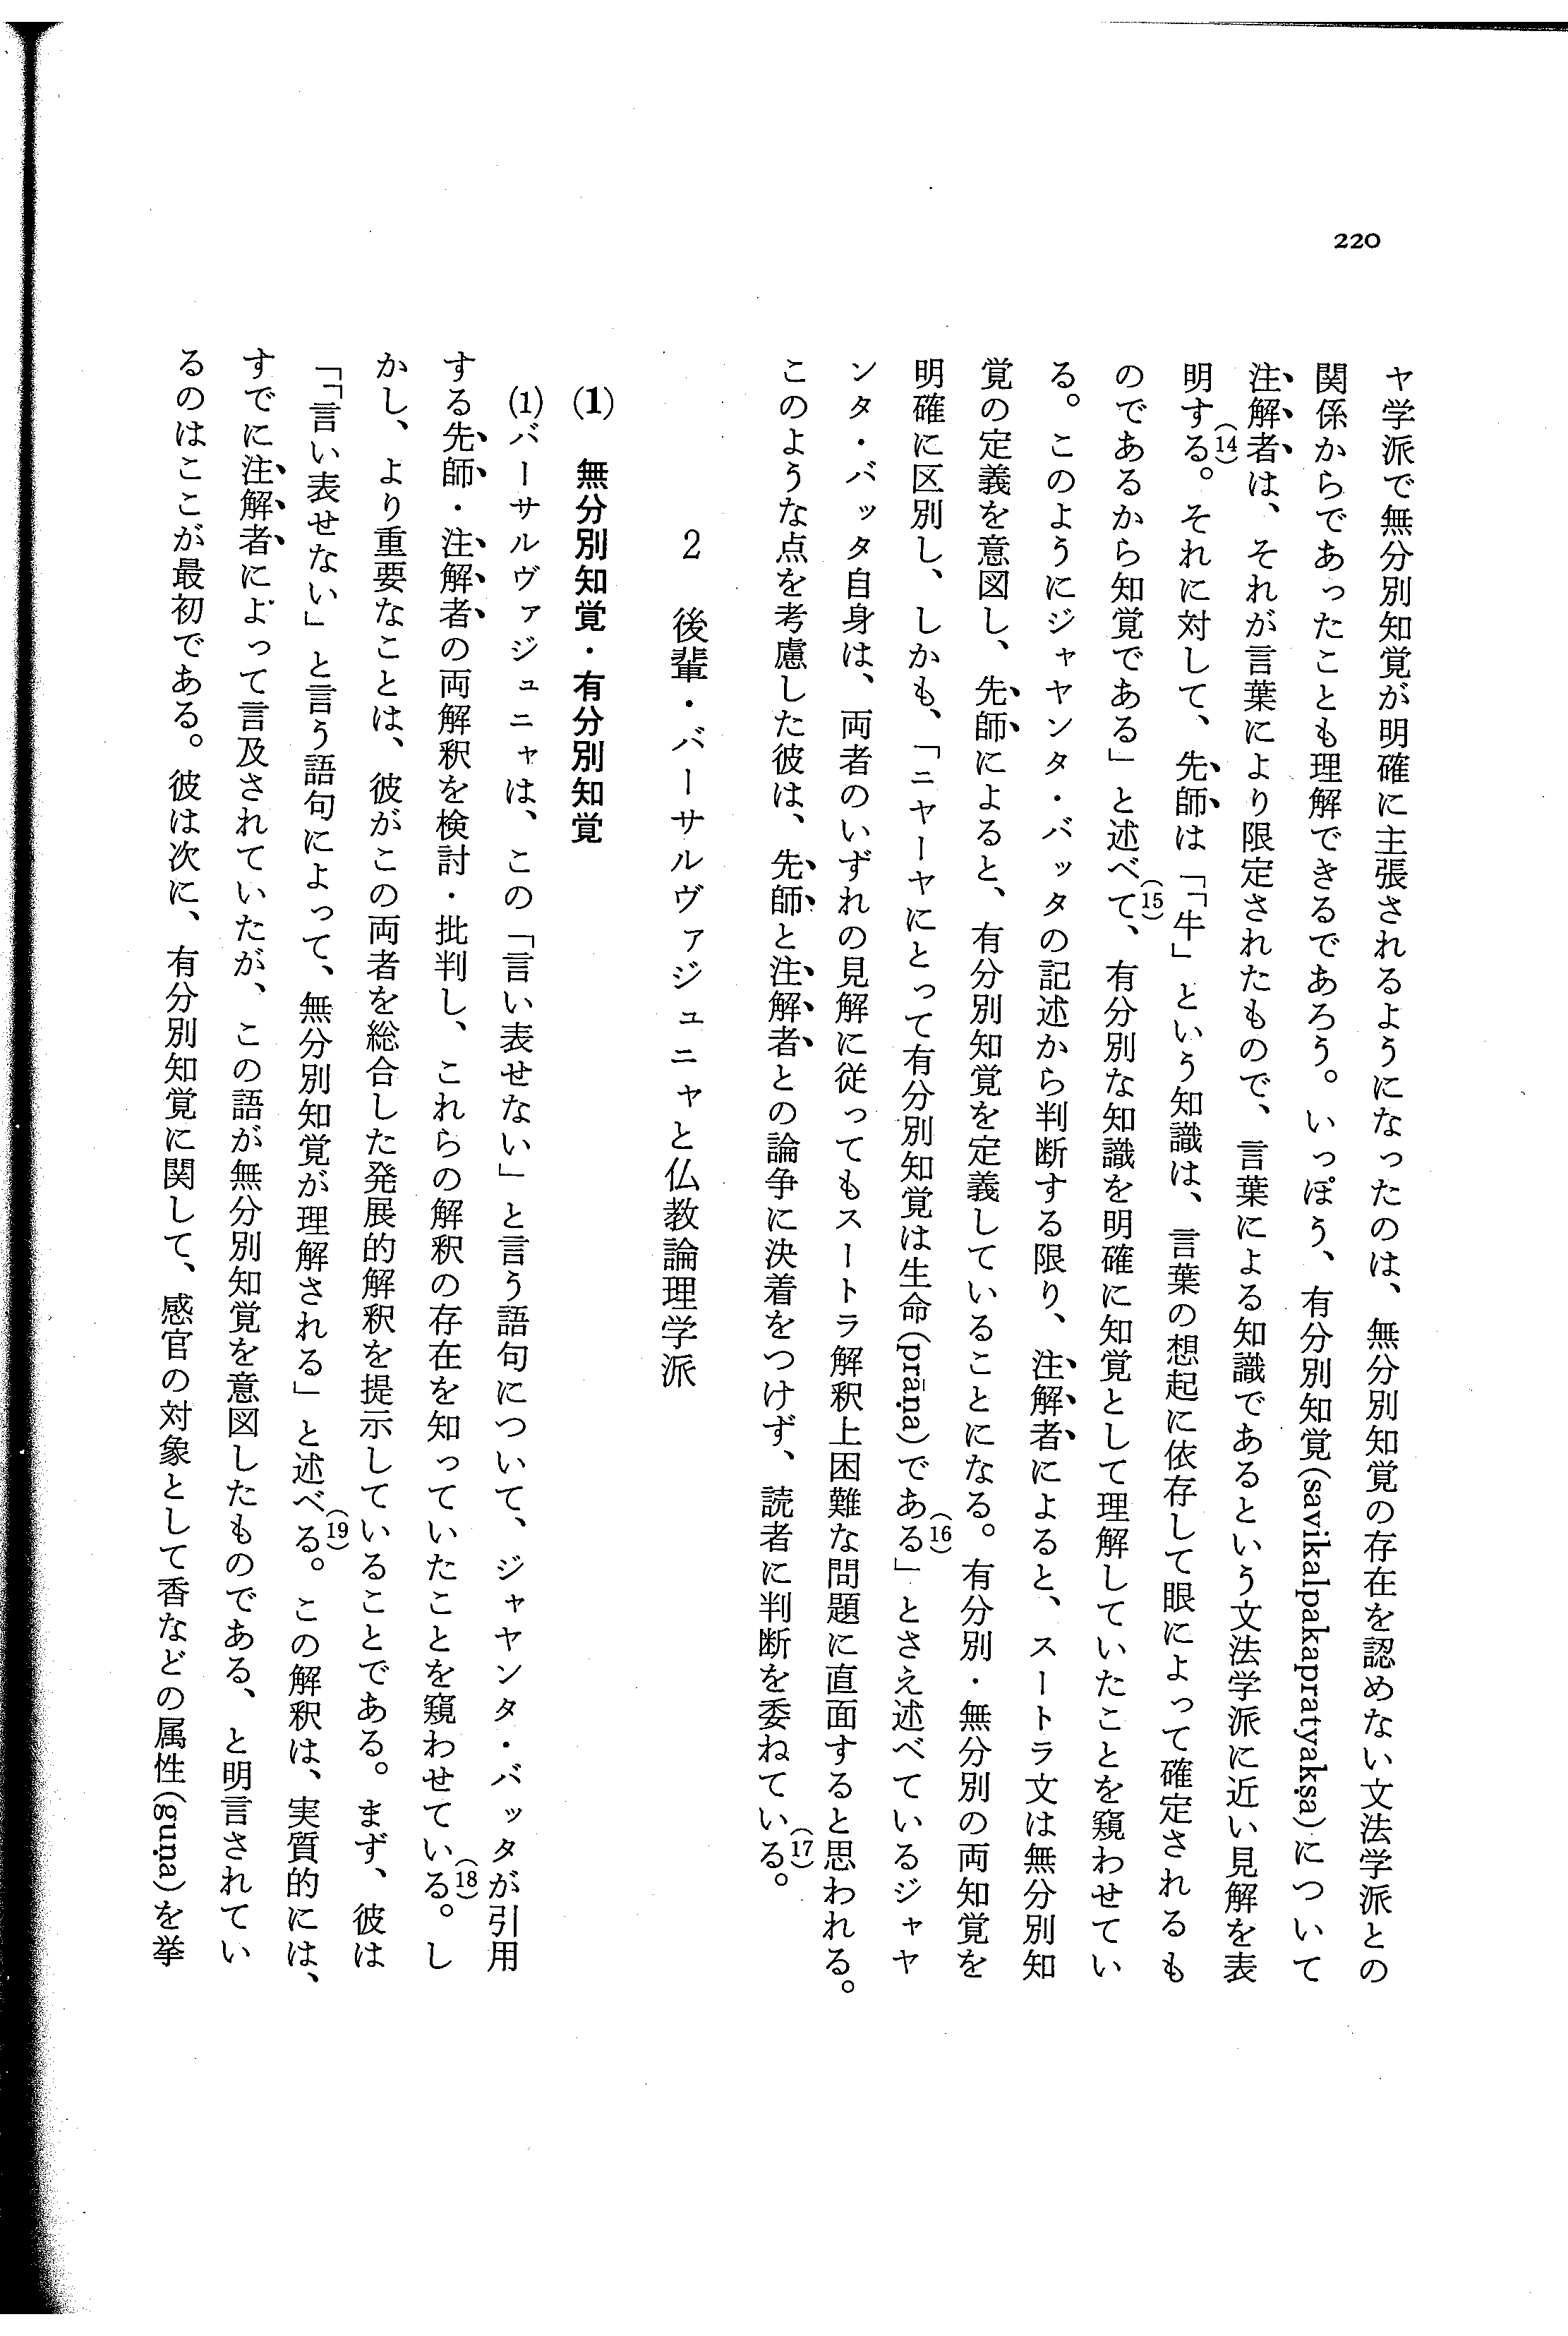 220
ヤ学派で無分別知覚が明確に主張されるようになったのは、無分別知覚の存在を認めない文法学派との
関係からであったことも理解できるであろう。いっぽう、有分別知覚(savikalpakapratyakṣa)について
注解者は、それが言葉により限定されたもので、言葉による知識であるという文法学派に近い見解を表
明する(14)。それに対して、先師は「「牛」という知識は、言葉の想起に依存して眼によって確定されるも
のであるから知覚である」と述べて(15)、有分別な知識を明確に知覚として理解していたことを窺わせてい
る。このようにジャヤンタ・バッタの記述から判断する限り、注解者によると、スートラ文は無分別知
覚の定義を意図し、先師によると、有分別知覚を定義していることになる。有分別・無分別の両知覚を
明確に区別し、しかも、「ニヤーヤにとって有分別知覚は生命(prāṇa)である(16)」とさえ述べているジャヤ
ンタ・バッタ自身は、両者のいずれの見解に従ってもスートラ解釈上困難な問題に直面すると思われる。
このような点を考慮した彼は、先師と注解者との論争に決着をつけず、読者に判断を委ねている(17)。
2 後輩・バーサルヴァジュニャと仏教論理学派
(1) 無分別知覚・有分別知覚
(1)バーサルヴァジュニャは、この「言い表せない」と言う語句について、ジャヤンタ・バッタが引用
する先師・注解者の両解釈を検討・批判し、これらの解釈の存在を知っていたことを窺わせている(18)。し
かし、より重要なことは、彼がこの両者を総合した発展的解釈を提示していることである。まず、彼は
「「言い表せない」と言う語句によって、無分別知覚が理解される」と述べる(19)。この解釈は、実質的には、
すでに注解者によって言及されていたが、この語が無分別知覚を意図したものである、と明言されてい
るのはここが最初である。彼は次に、有分別知覚に関して、感官の対象として香などの属性(guṇa)を挙